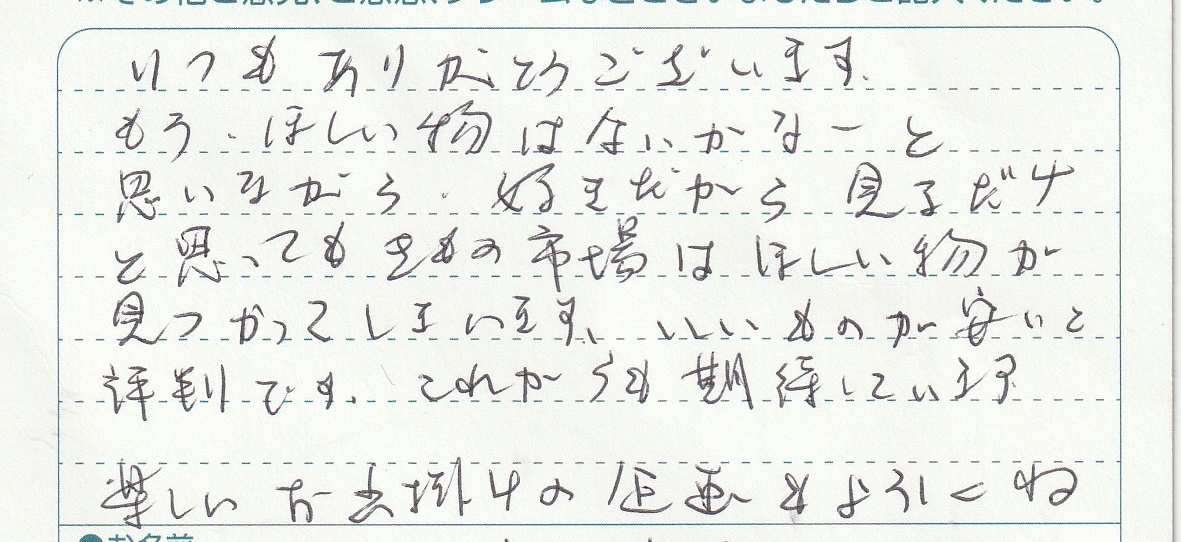 いつもありがとうございます。
もう、ほしい物はないかなーと
思いながら、好きだから見るだけ
と思ってもきもの市場はほしい物が
見つかってしまいます、いいものが安いと
評判です。これからも期待しています
楽しいお出掛けの企画もよろしくね